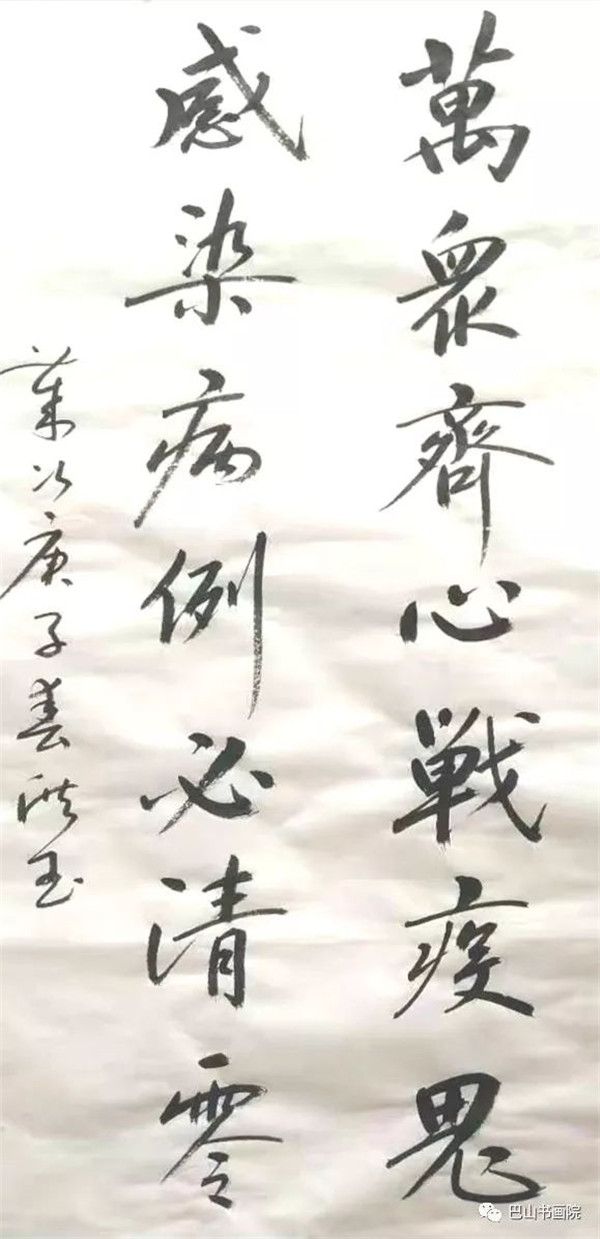 萬眾齊心戰疫鬼
感染病例必清零
歲次庚子春洪玉
巴山书画院